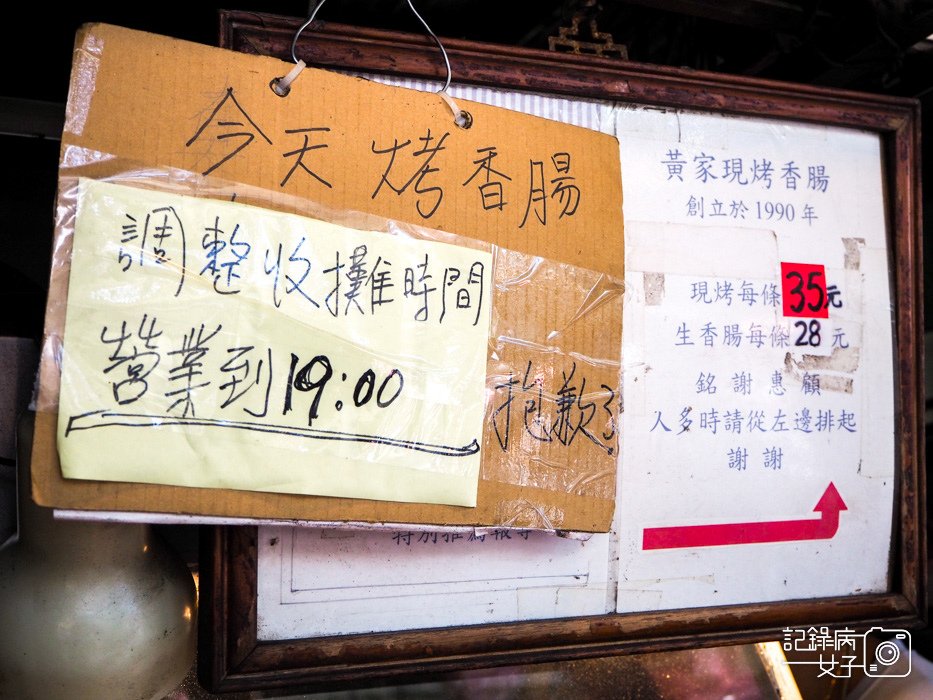 今天烤香腸
調整收攤時間
營業到19:00
抱歉了
黃家現烤香腸
創立於1990年
現烤每條35元
生香腸每條28元
銘謝惠顧
人多時請從左邊排起
謝謝
特別推薦報導
記錄病女子